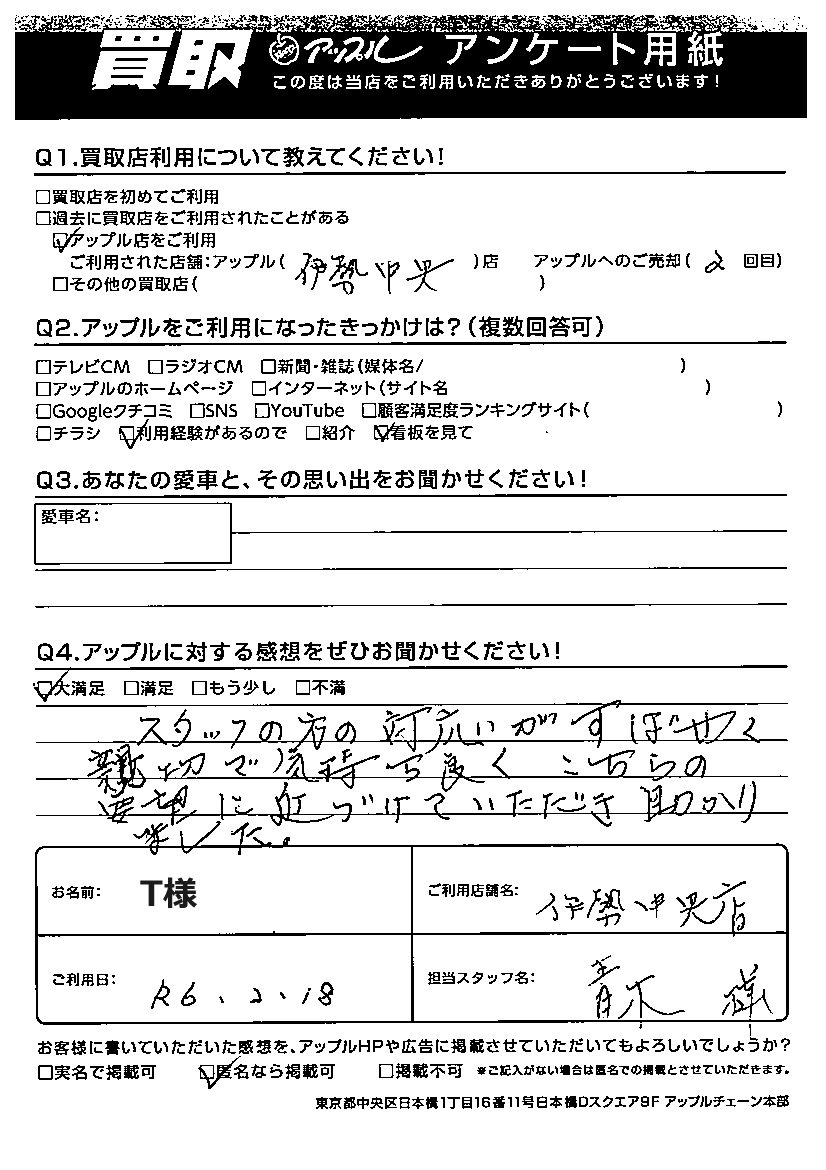 買取 アップル アンケート用紙
この度は当店をご利用いただきありがとうございます!
Q1.買取店利用について教えてください!
□買取店を初めてご利用
□過去に買取店をご利用されたことがある
☑アップル店をご利用
ご利用された店舗:アップル( 伊勢中央 )店 アップルへのご売却( 2 回目)
□その他の買取店( )
Q2.アップルをご利用になったきっかけは?(複数回答可)
□テレビCM □ラジオCM □新聞・雑誌(媒体名/ )
□アップルのホームページ □インターネット(サイト名 )
□Googleクチコミ □SNS □YouTube □顧客満足度ランキングサイト( )
□チラシ ☑利用経験があるので □紹介 ☑看板を見て
Q3.あなたの愛車と、その思い出をお聞かせください!
愛車名:
Q4.アップルに対する感想をぜひお聞かせください!
☑大満足 □満足 □もう少し □不満
スタッフの方の対応いがすばせく
親切で気持ち良く こちらの
要望に近づけていただき助かり
ました。
お名前: T様
ご利用店舗名: 伊勢中央店
ご利用日: R6.2.18
担当スタッフ名: 青木
お客様に書いていただいた感想を、アップルHPや広告に掲載させていただいてもよろしいでしょうか?
□実名で掲載可 ☑匿名なら掲載可 □掲載不可 ※ご記入がない場合は匿名での掲載とさせていただきます。
東京都中央区日本橋1丁目16番11号日本橋Dスクエア9F アップルチェーン本部